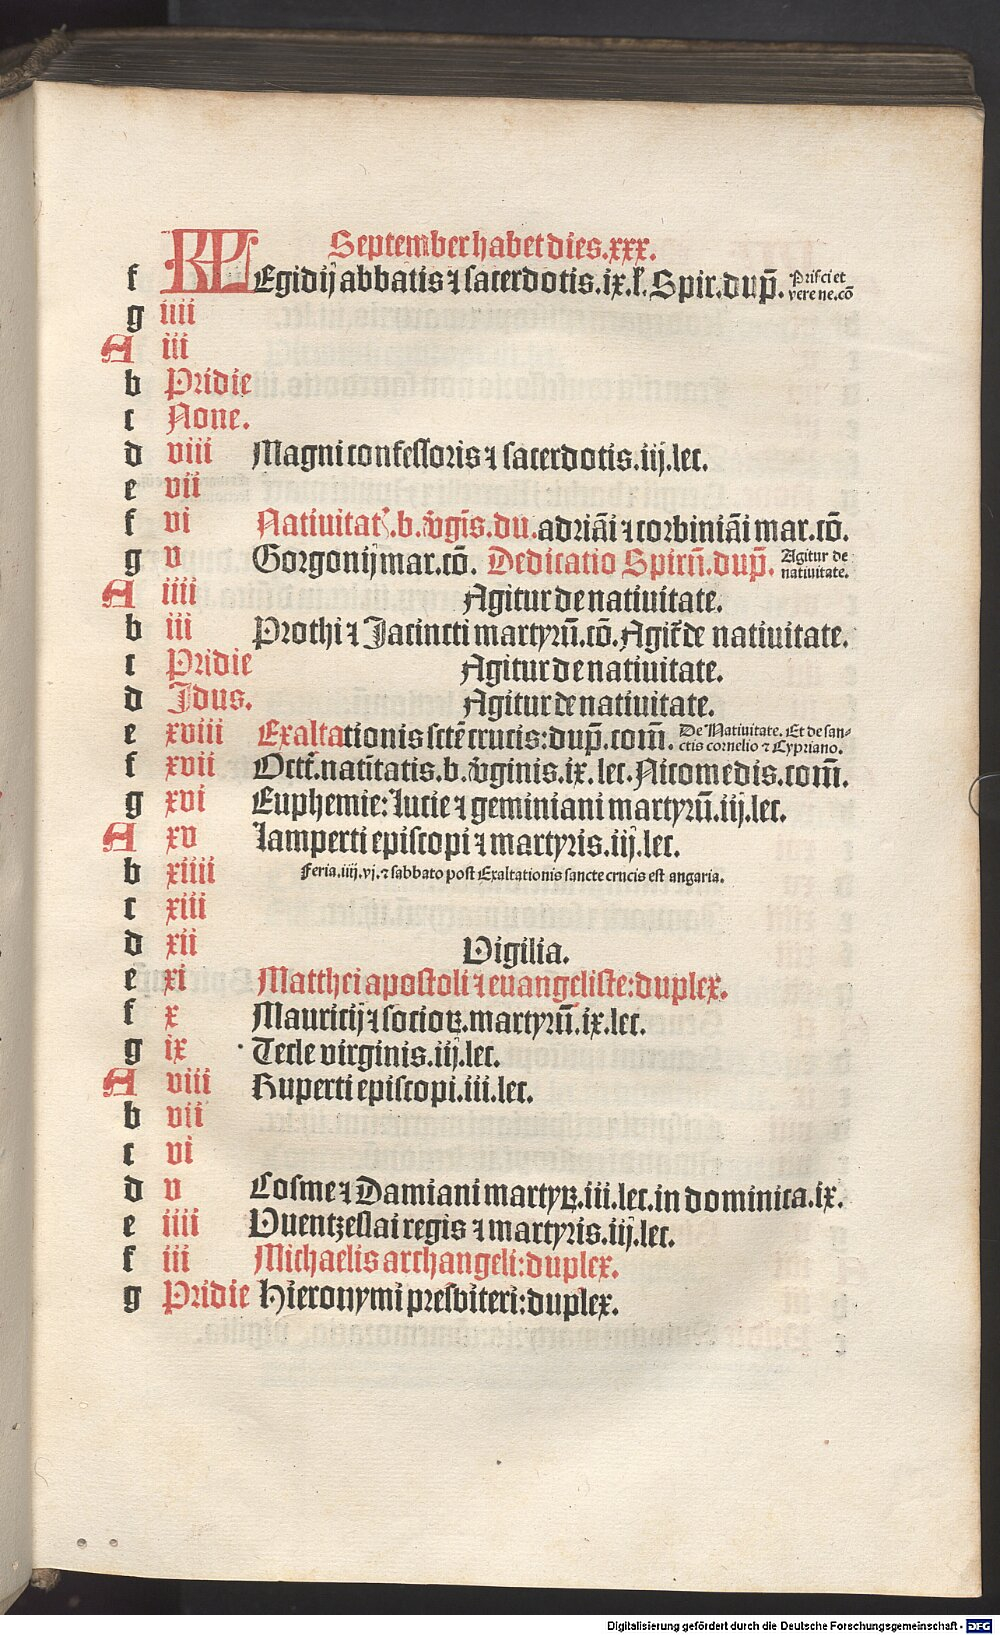 KL September habet dies.xxx.
f Egidij abbatis ⁊ sacerdotis.ix.l. Spir.dup̄. Prisci et vere ne.cō
g iiii
A iii
b Pridie
c None.
d viii Magni confessoris ⁊ sacerdotis.iij.lec.
e vii
f vi Natiuitat.b.v̄gīs.du. adriāi ⁊ corbiniāi mar.cō.
g v Gorgonij mar.cō. Dedicatio Spirn̄.dup̄. Agitur de natiuitate.
A iiii Agitur de natiuitate.
b iii Prothi ⁊ Jacincti martyrū.cō. Agit̄ de natiuitate.
c Pridie Agitur de natiuitate.
d Jdus. Agitur de natiuitate.
e xviii Exaltationis sctē crucis: dup̄.com̄. De Natiuitate. Et de sanctis cornelio ⁊ Cypriano.
f xvii Octt̄.natītatis.b.v̄ginis.ix.lec. Nicomedis.com̄.
g xvi Euphemie: lucie ⁊ geminiani martyrū.iij.lec.
A xv Lamperti episcopi ⁊ martyris.iij.lec.
b xiiii Feria.iiij.vj.⁊ sabbato post Exaltationis sancte crucis est angaria.
c xiii
d xii Vigilia.
e xi Matthei apostoli ⁊ euangeliste: duplex.
f x Mauricij ⁊ socioꝝ.martyrū.ix.lec.
g ix Tecle virginis.iij.lec.
A viii Ruperti episcopi.iii.lec.
b vii
c vi
d v Cosme ⁊ Damiani martyꝝ.iii.lec.in dominica.ix.
e iiii Vuentzeslai regis ⁊ martyris.iij.lec.
f iii Michaelis archangeli: duplex.
g Pridie Hieronymi presbiteri: duplex.
Digitalisierung gefördert durch die Deutsche Forschungsgemeinschaft - DFG